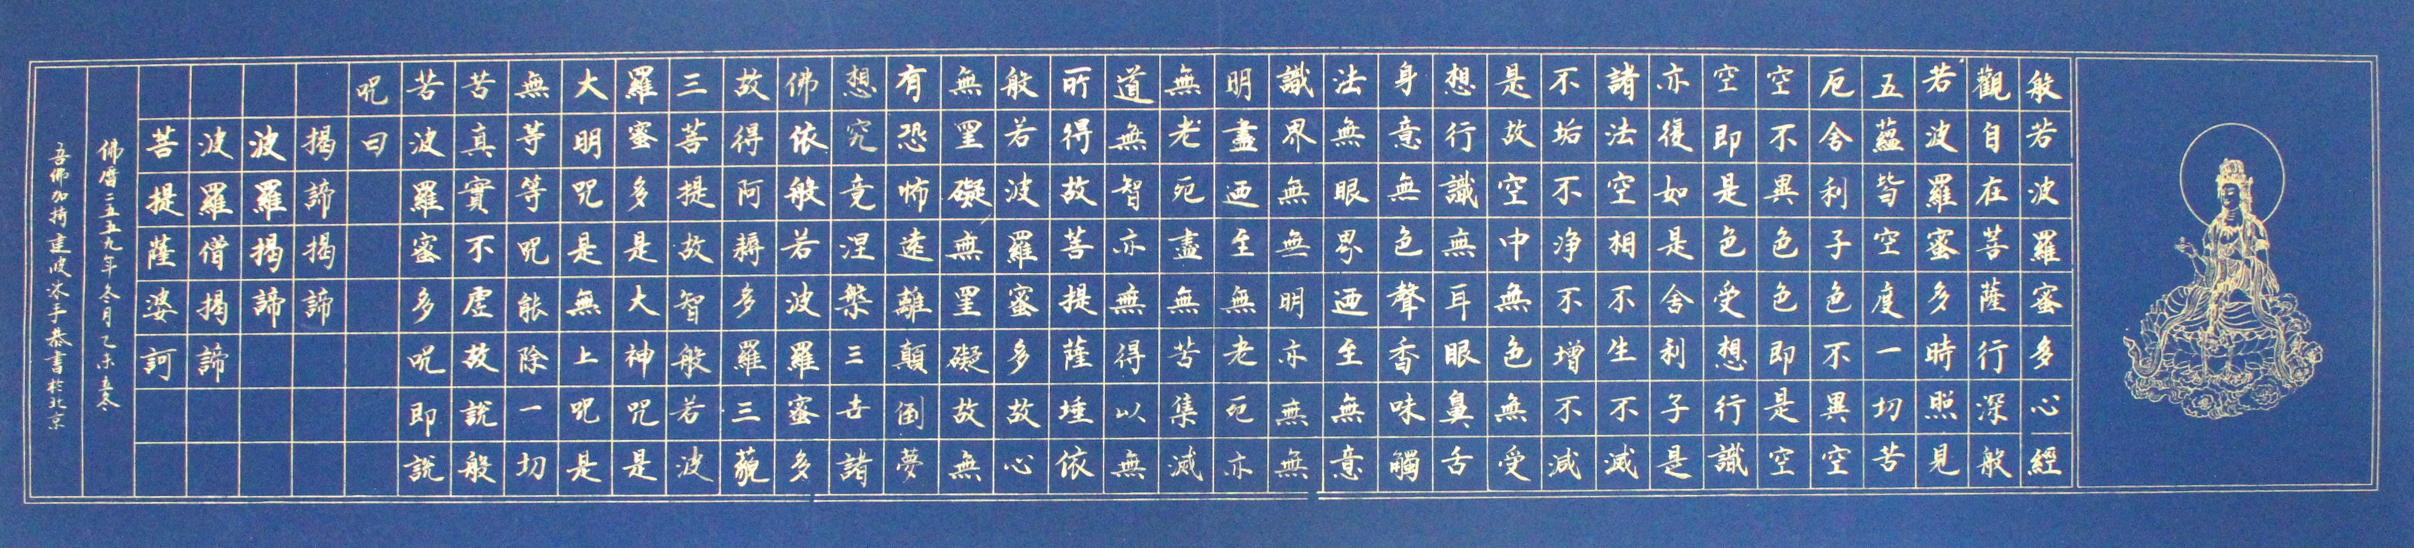 般若波羅蜜多心經
觀自在菩薩行深般
若波羅蜜多時照見
五蘊皆空度一切苦
厄舍利子色不異空
空不異色色即是空
空即是色受想行識
亦復如是舍利子是
諸法空相不生不滅
不垢不净不增不減
是故空中無色無受
想行識無耳眼鼻舌
身意無色聲香味觸
法無眼界迺至無意
識界無無明亦無無
明盡迺至無老死亦
無老死盡無苦集滅
道無智亦無得以無
所得故菩提薩埵依
般若波羅蜜多故心
無罣礙無罣礙故無
有恐怖遠離顛倒夢
想究竟涅槃三世諸
佛依般若波羅蜜多
故得阿耨多羅三藐
三菩提故智般若波
羅蜜多是大神咒是
大明咒是無上咒是
無等等咒能除一切
苦真實不虛故說般
若波羅蜜多咒即說
咒曰
揭諦揭諦
波羅揭諦
波羅僧揭諦
菩提薩婆訶
佛曆二五五九年冬月乙未立冬
吾佛加持建波沐手恭書於北京